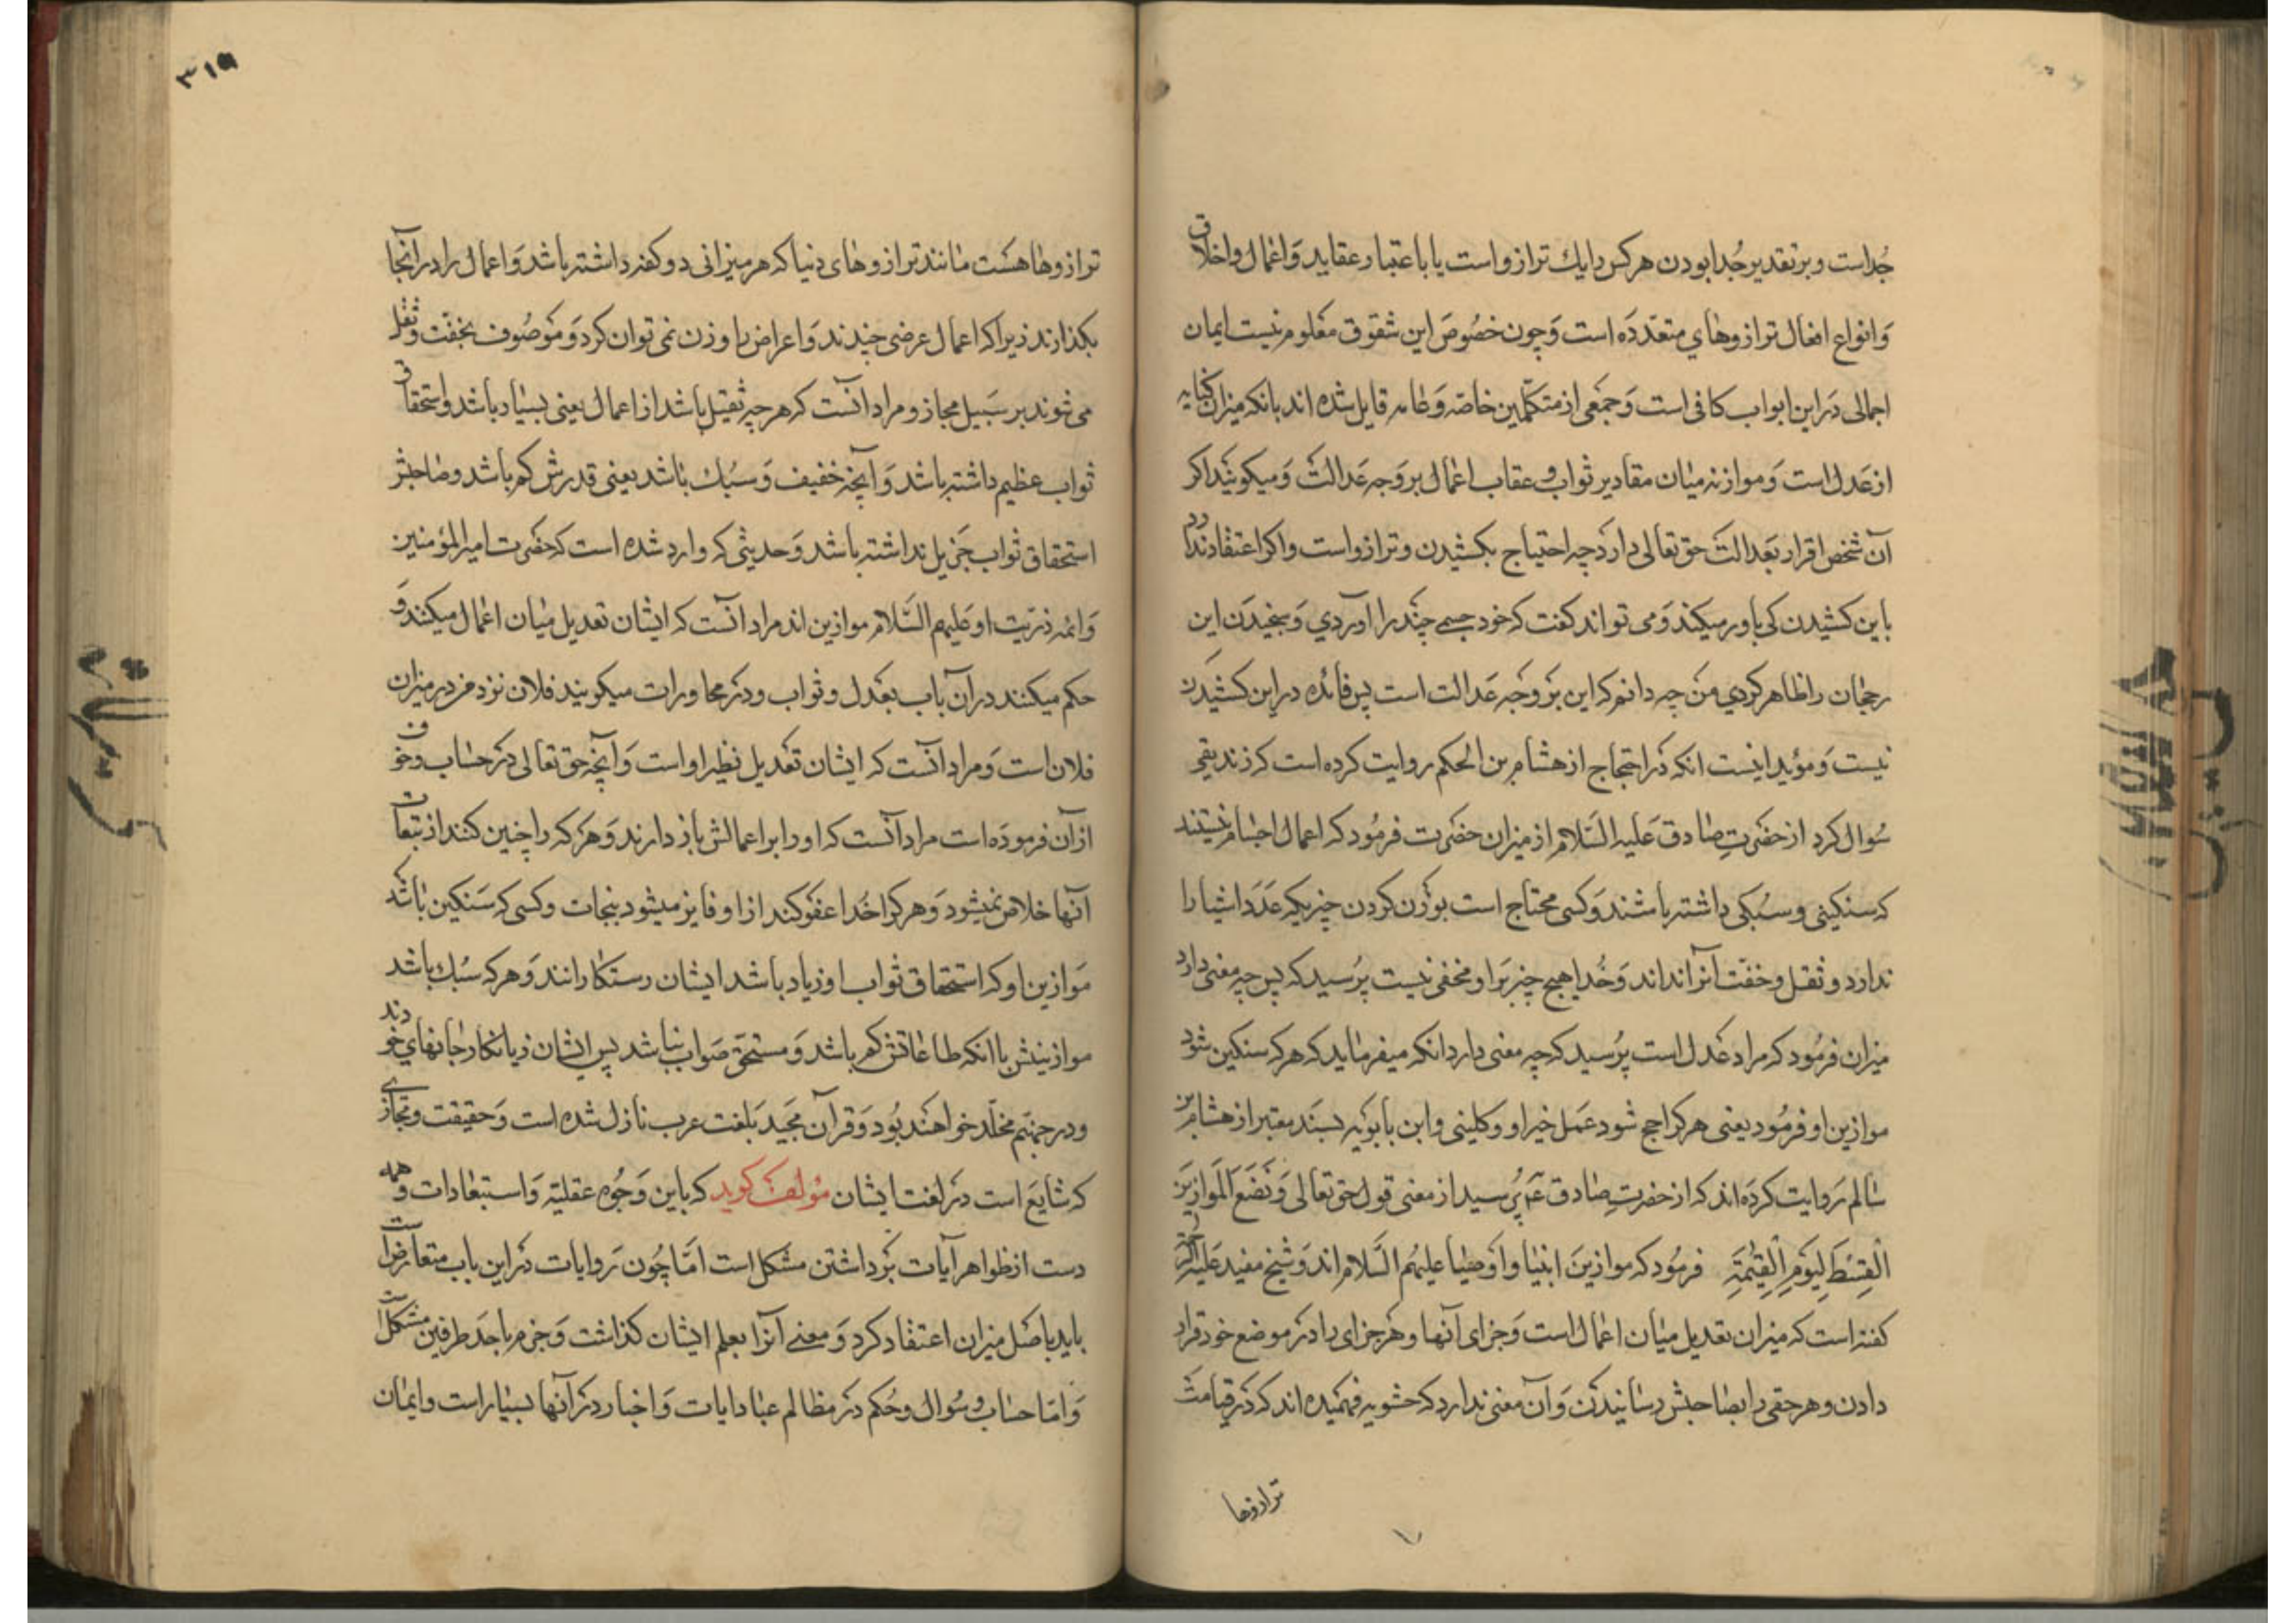 جُداست و بر تقدیر جُدا بودن هر کس را یك ترازو است یا باعتبار عقاید وَ اعمال و اخلاق
وَ انواع افعال ترازوهاي متعدّدَه است وَ چون خصُوصَ این شقوق معلوم نیست ایمان
اجمالی دَر این ابواب کافی است وَ جمَعی از متکلّمین خاصّه وَ عامه قایل شده اند بانکه میزان کنایه
از عَدل است وَ موازنه میان مقادیر ثواب و عقاب اعمال بر وَجه عَدالت وَ میکویند اکر
آن شخص اقرار بعَدالت حق تعالی دارد چه احتیاج بکشیدن و ترازو است و اکر اعتقاد ندارد
باین کشیدن کی باور میکند وَ می تواند کفت که خود جسمے چند را آوردي وَ سنجیدَن این
رجحان را ظاهر کردي من چه دانم که این بر وجه عَدالت است پس فائده در این کشیدن
نیست وَ مؤید اینست انکه دَر احتجاج از هشام بن الحکم روایت کرده است که زندیقی
سُوال کرد از حضرتِ صادق عَلیه السَّلام از میزان حضرت فرمُود که اعمال اجسام نیستند
که سنکینی و سبُکی داشته باشند وَ کسی محتاج است بوَزن کردن چیزیکه عَدَد اشیا را
نداند و ثقل و خفّت آنرا نداند وَ خُدا هیچ چیز بَر او مخفی نیست پرُسید که پس چه معنی دارد
میزان فرمُود که مراد عَدل است پرُسید که چه معنی دارد انکه میفرماید که هر که سنکین شود
موازین او فرمُود یعنی هر که راجح شود عَمل خیر او و کلینی و ابن بابوَیه بسنَد معتبر از هشام بن
سالم رَوایت کردَه اند که از حضرتِ صادق عَ پُرسید از معنی قول حق تعالی وَ نَضَعُ الْمَوازِینَ
الْقِسْطَ لِیَوْمِ الْقِیٰمَةِ فرمُود که موازینَ انبیا و اوَصیا علیهُم السَّلام اند وَ شیخ مفید عَلیه الرَّحمة
کفته است که میزان تعدیل میان اعمال است وَ جزای آنها و هَر جزای را در موضع خود قرار
دادن و هر حقی را بصاحبش رسانیدَن وَ آن معنی ندارد که حشویه فهمیده اند که دَر قیامت
ترازوها
٣١٩
ترازوها هست مانند ترازوهای دنیا که هر میزانی دو کفه داشته باشد وَ اعمال را در آنجا
بکذارند زیرا که اعمال عرضی چندند وَ اعراض را وزن نمی توان کرد وَ موَصُوف بخفّت و ثقل
می شوند بر سَبیل مجاز و مراد آنست که هر چه ثقیل باشد از اعمال یعنی بسیاد باشد و استحقاق
ثواب عظیم داشته باشد وَ آنچه خفیف وَ سبُك باشد یعنی قدرش کم باشد و صاحبش
استحقاق ثواب جَزیل نداشته باشد وَ حدیثی که وارد شده است که حضرت امیر المؤمنین
وَ ائمه ذرّیت او عَلیهم السَّلام موازین اند مراد انست که ایشان تعدیل میان اعمال میکنند وَ
حکم میکنند در آن باب بعَدل و ثواب و در محاورات میکویند فلان نزد من در میزان
فلان است وَ مراد آنست که ایشان تعَدیل نظیر او است وَ آنچه حق تعالی در حساب و خوف
از آن فرموده است مراد آنست که او را بر اعمالش باز دارند وَ هر که را چنین کنند از تبعات
آنها خلاص نمیشود وَ هر که را خُدا عفو کند از او فایز میشود بنجات و کسی که سَنکین باشد
موَازین او که استحقاق ثواب او زیاد باشد ایشان رستکارانند وَ هر که سبُك باشد
موازینش با انکه طاعاتش کم باشد وَ مستحقّ صَواب نباشد پس ایشان زیانکار جانهاي خودند
و در جهنّم مخلّد خواهند بُود وَ قرآن مجَید بَلغت عرب نازل شده است وَ حقیقت و مجازے
که شایَع است در لغت ایشان مؤلف کوید که باین وَجُوه عقلیّه وَ استبعادات وَهمیه
دست از ظواهر آیات بَرداشتن مشکل است امّا چُون رَوایات در این باب متعارض است
باید باصَل میزان اعتقاد کرد وَ معنے آنرا بعلم ایشان کذاشت وَ جزم باحَد طرفین مشکل است
وَ امّا حساب و سُوال و حُکم در مظالم عباد ایات وَ اخبار در آنها بسیار است و ایمان